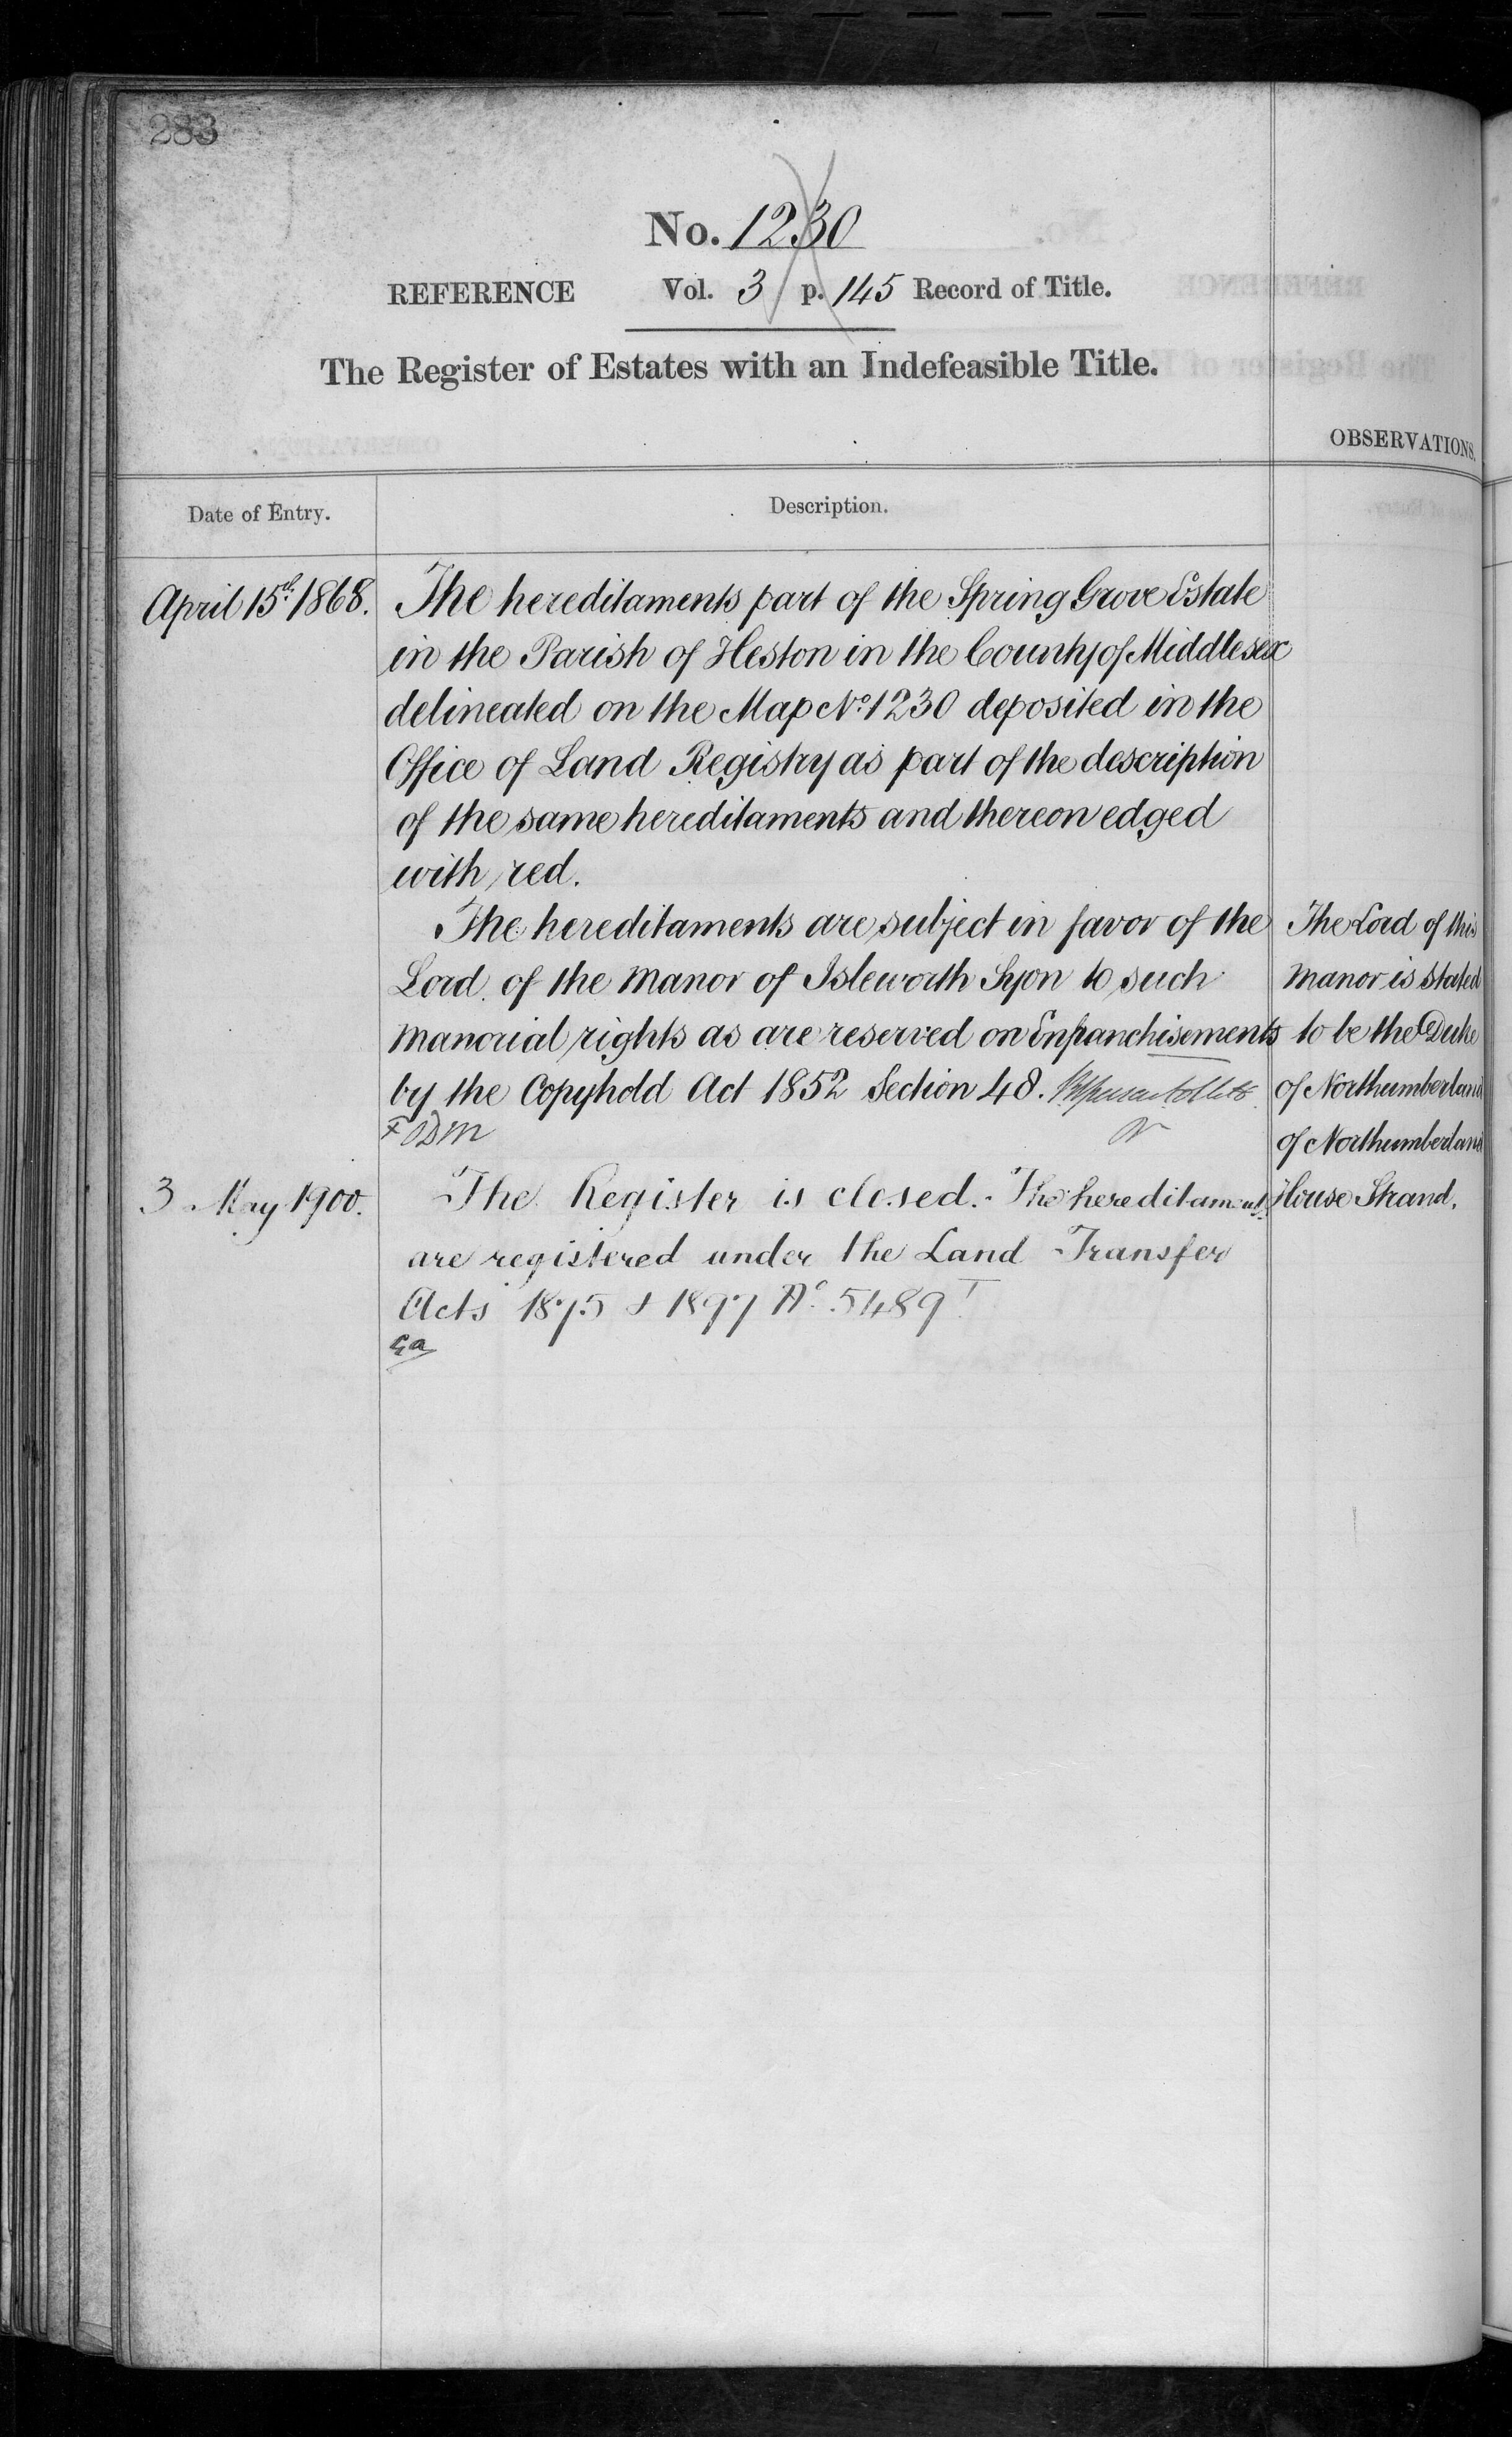 283
No. 1230
REFERENCE Vol. 3 p. 145 Record of Title.
The Register of Estates with an Indefeasible Title.
OBSERVATIONS.
Date of Entry.
Description.
April 15th 1868.
The hereditaments part of the Spring Grove Estate
in the Parish of Heston in the County of Middlesex
delineated on the Map No. 1230 deposited in the
Office of Land Registry as part of the description
of the same hereditaments and thereon edged
with red.
The hereditaments are subject in favor of the
Lord of the Manor of Isleworth Syon to such
manorial rights as are reserved on Enfranchisements
by the Copyhold Act 1852 Section 48.
3 May 1900.
The Register is closed. The hereditaments
are registered under the Land Transfer
Acts 1875 & 1897 No. 5489
The Lord of this
Manor is stated
to be the Duke
of Northumberland
of Northumberland
House Strand.